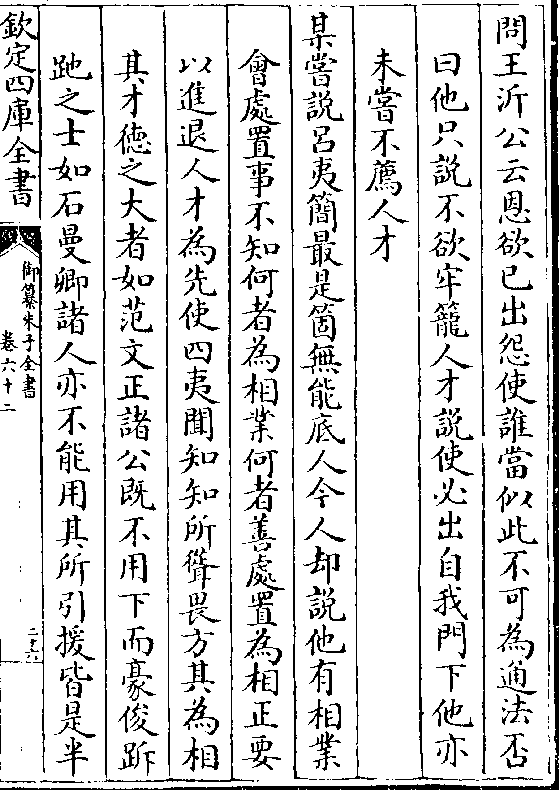 問王沂公云恩欲已出怨使誰當似此不可為通法否
曰他只說不欲牢籠人才說使必出自我門下他亦
未嘗不薦人才
某嘗説吕夷簡最是箇無能底人今人却說他有相業
會處置事不知何者為相業何者善處置為相正要
以進退人才為先使四夷聞知知所聳畏方其為相
其才德之大者如范文正諸公既不用下而豪俊跅
跑之士如石曼卿諸人亦不能用其所引援皆是半
欽定四庫全書
御纂朱子全書
卷六十二
二十六